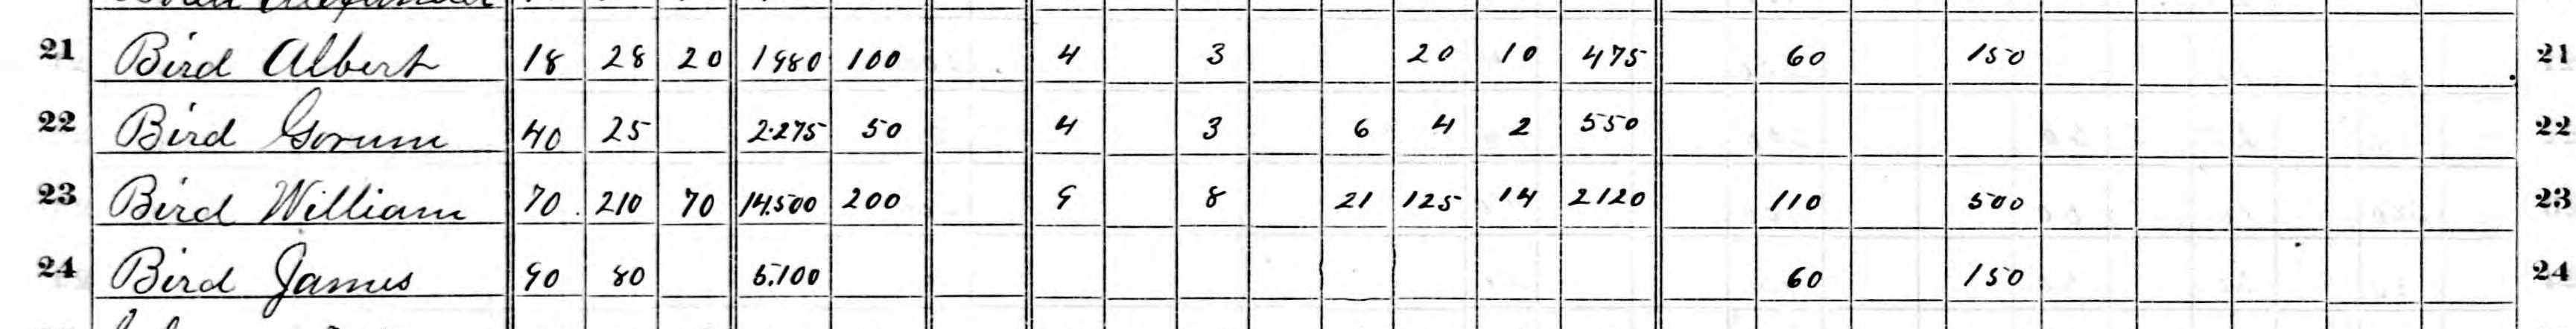 21 Bird Albert 18 28 20 1980 100 4 3 20 10 475 60 150 21
22 Bird Gorum 40 25 2.275 50 4 3 6 4 2 550 22
23 Bird William 70 210 70 14.500 200 9 8 21 125 14 2120 110 500 23
24 Bird James 90 80 5.100 60 150 24